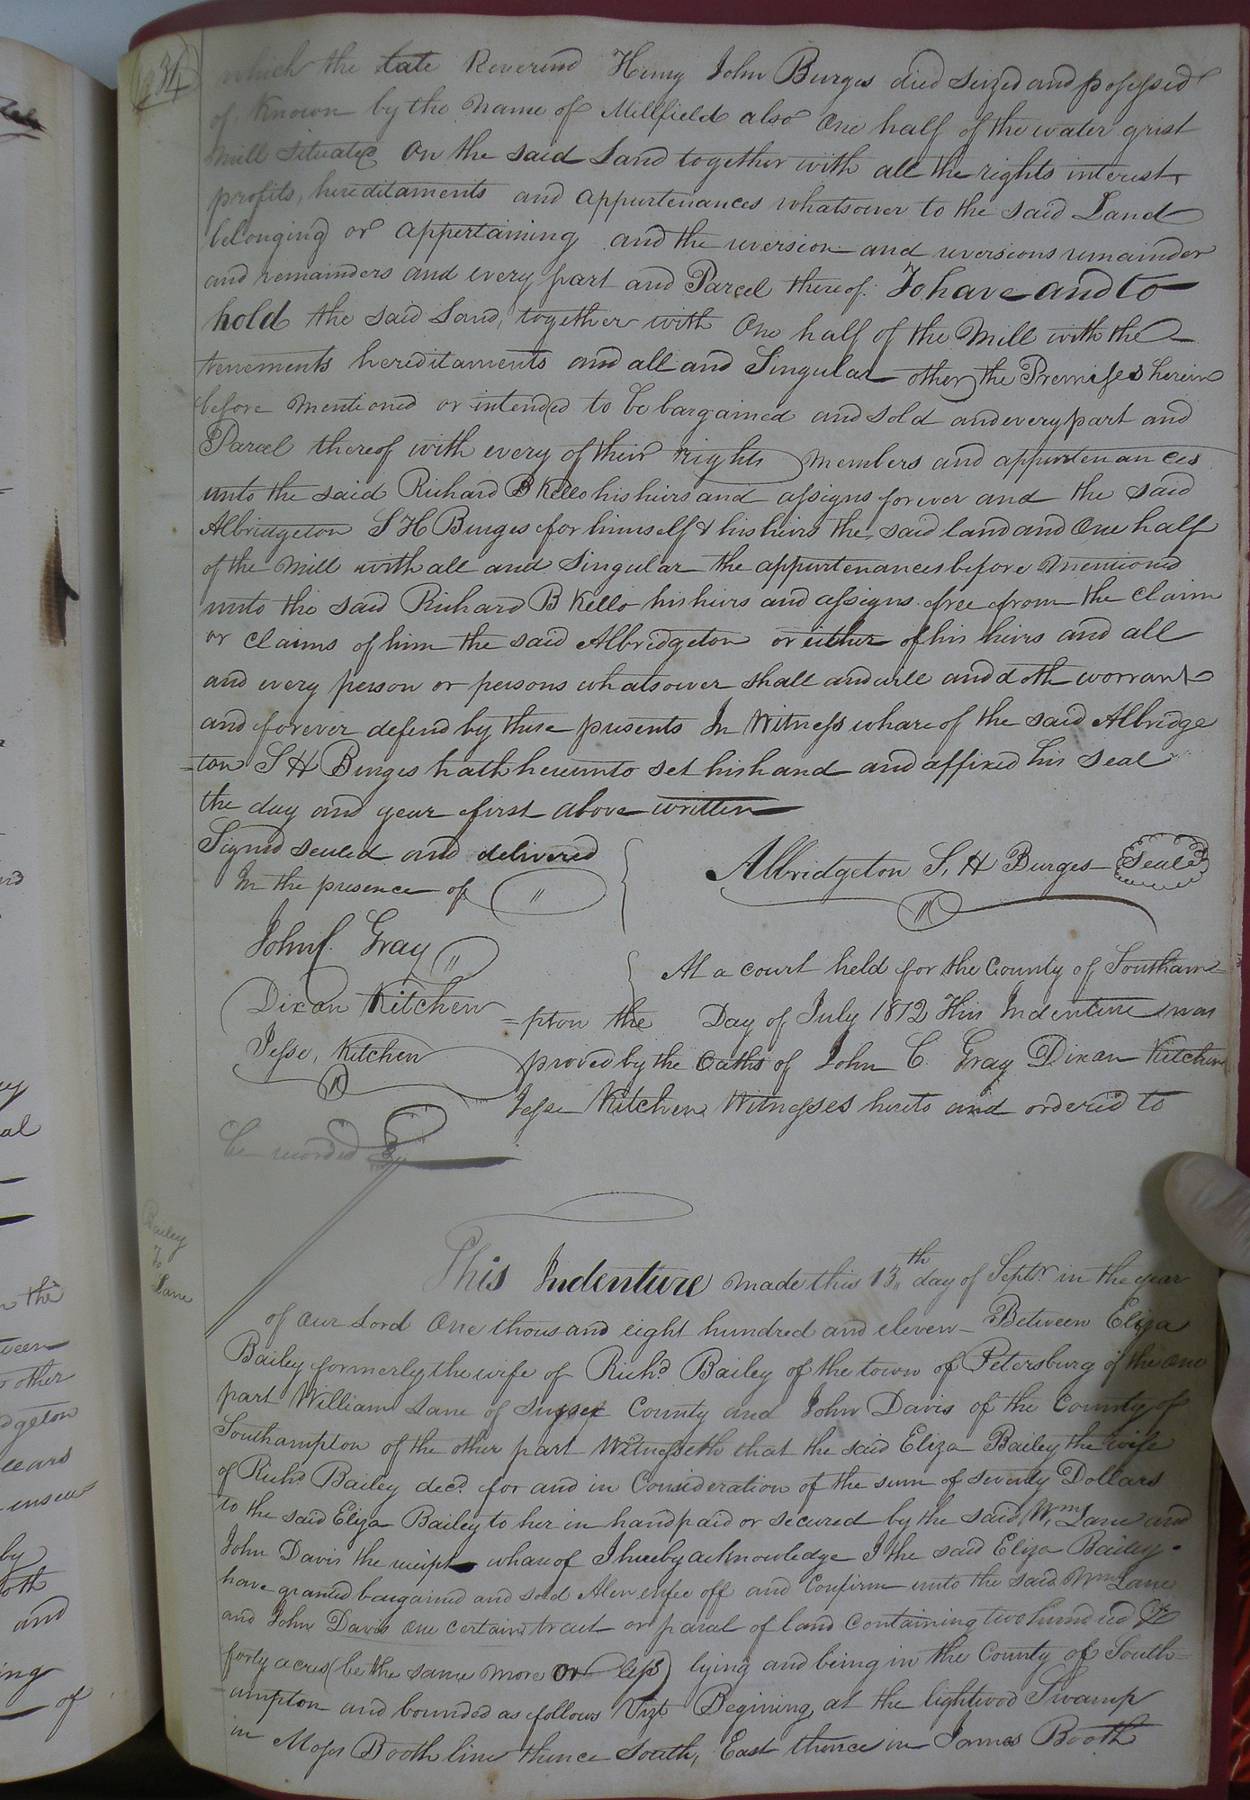 34
which the late Reverend Henry John Burges died seized and possessed
of known by the name of Millfield also One half of the water grist
Mill situate On the said Land together with all the rights interest
profits, hereditaments and appurtenances whatsoever to the said Land
belonging or appertaining and the reversion and reversions remainder
and remainders and every part and Parcel thereof: To have and to
hold the said Land, together with One half of the Mill with the
tenements hereditaments and all and Singular other the Premises herein
before mentioned or intended to be bargained and sold and every part and
Parcel thereof with every of their rights members and appurtenances
unto the said Richard B Kello his heirs and assigns forever and the said
Albridgeton S H Burges for himself & his heirs the said land and One half
of the Mill with all and Singular the appurtenances before mentioned
unto the said Richard B Kello his heirs and assigns free from the claim
or claims of him the said Albridgeton or either of his heirs and all
and every person or persons whatsoever shall and will and doth worrant
and forever defend by these presents In Witness whareof the said Albridge
=ton S H Burges hath hereunto set his hand and affixed his seal
the day and year first above written
Signed sealed and delivered
In the presence of "
Albridgeton S, H Burges Seal
John C. Gray "
Dixon Kitchen
Jesse, Kitchen
At a court held for the County of Southam=
=pton the Day of July 1812 This Indenture was
proved by the Oaths of John C. Gray Dixon Kitchen
Jesse Kitchen Witnesses hereto and ordered to
be recorded
Bailey
To
Lane
This Indenture made this 13th day of Septr. in the year
of our Lord One thousand eight hundred and eleven Between Eliza
Bailey formerly the wife of Richd. Bailey of the town of Petersburg of the one
part William Lane of Sussex County and John Davis of the County of
Southampton of the other part Witnesseth that the said Eliza Bailey the wife
of Richd Bailey decd. for and in Consideration of the sum of seventy Dollars
to the said Eliza Bailey to her in hand paid or secured by the said, Wm, Lane and
John Davis the receipt whareof I hereby acknowledge I the said Eliza Bailey
have granted bargained and sold off and Confirm unto the said Wm Lane
and John Davis one certain tract or parcel of land containing two hundred &
forty acres (be the same more or less) lying and being in the County of South=
=ampton and bounded as follows Vizt Begining at the lightwood Swamp
in Moses Booth line thence South, East thence in James Booth